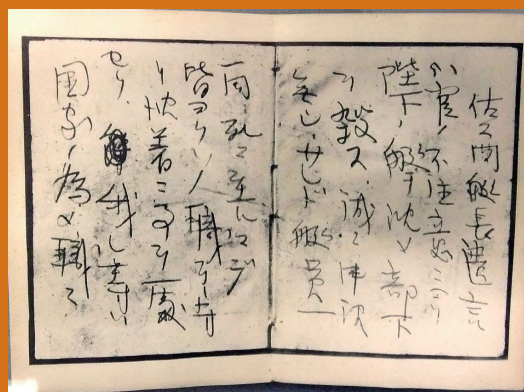 佐久間艇長遺言
小官ノ不注意ニヨリ
陛下ノ艇ヲ沈メ部下
ヲ殺ス、誠ニ申訳
無シ、サレド艇員一
同、死ニ至ルマデ
皆ヨクソノ職ヲ守
リ沈着ニ事ヲ處
セリ、我レ等ハ
国家ノ為メ職ニ